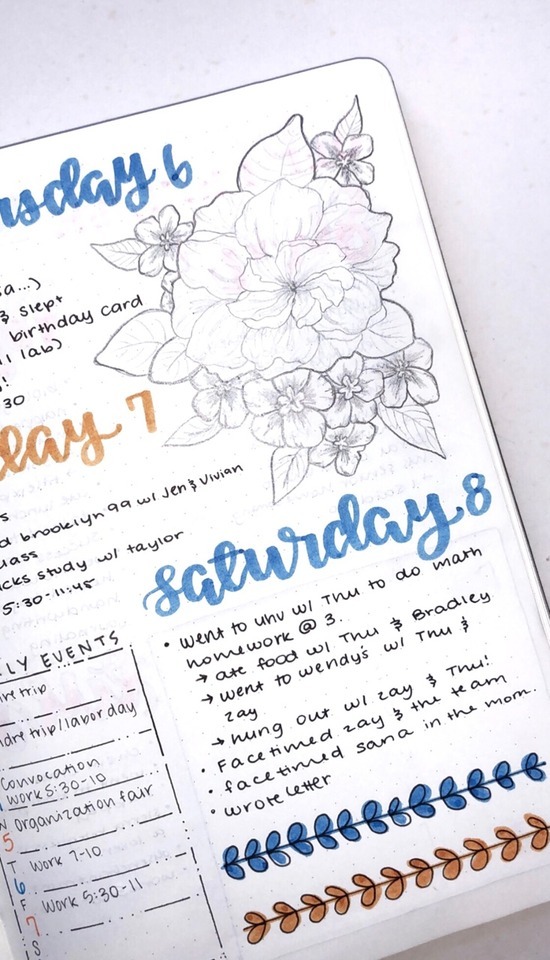 sday 6
sa...)
& slept
birthday card
ll lab)
!
30
day 7
s
d brooklyn 99 w/ Jen & Vivian
uass
cks study w/ taylor
5:30-11:45
saturday 8
• went to unv w/ Thu to do math
homework @ 3.
→ ate food w/ Thu & Bradley
→ went to wendy's w/ Thu &
zay
→ hung out w/ zay & Thu!
• Facetimed zay & the team
• facetimed sana in the morn.
• wrote letter
LY EVENTS
dre trip
dre trip/labor day
Convocation
work 5:30-10
W Organization fair
5
T Work 7-10
6
F Work 5:30-11
7
S